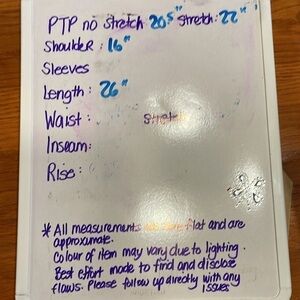 PTP no stretch 20.5" stretch: 22"
Shoulder: 16"
Sleeves
Length: 26"
Waist: Stretch
Inseam:
Rise:
* All measurements are flat and are
approximate.
Colour of item may vary due to lighting.
Best effort made to find and disclose
flaws. Please follow up directly with any
issues